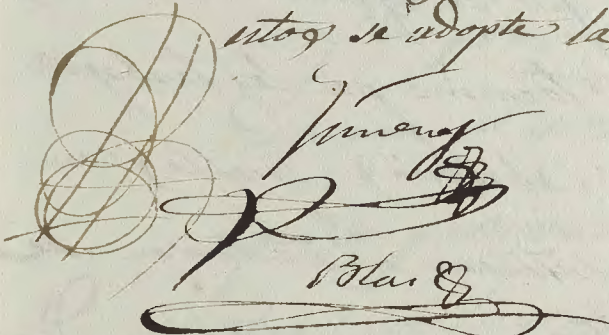 estos se adopte la
Jimenez
Blas